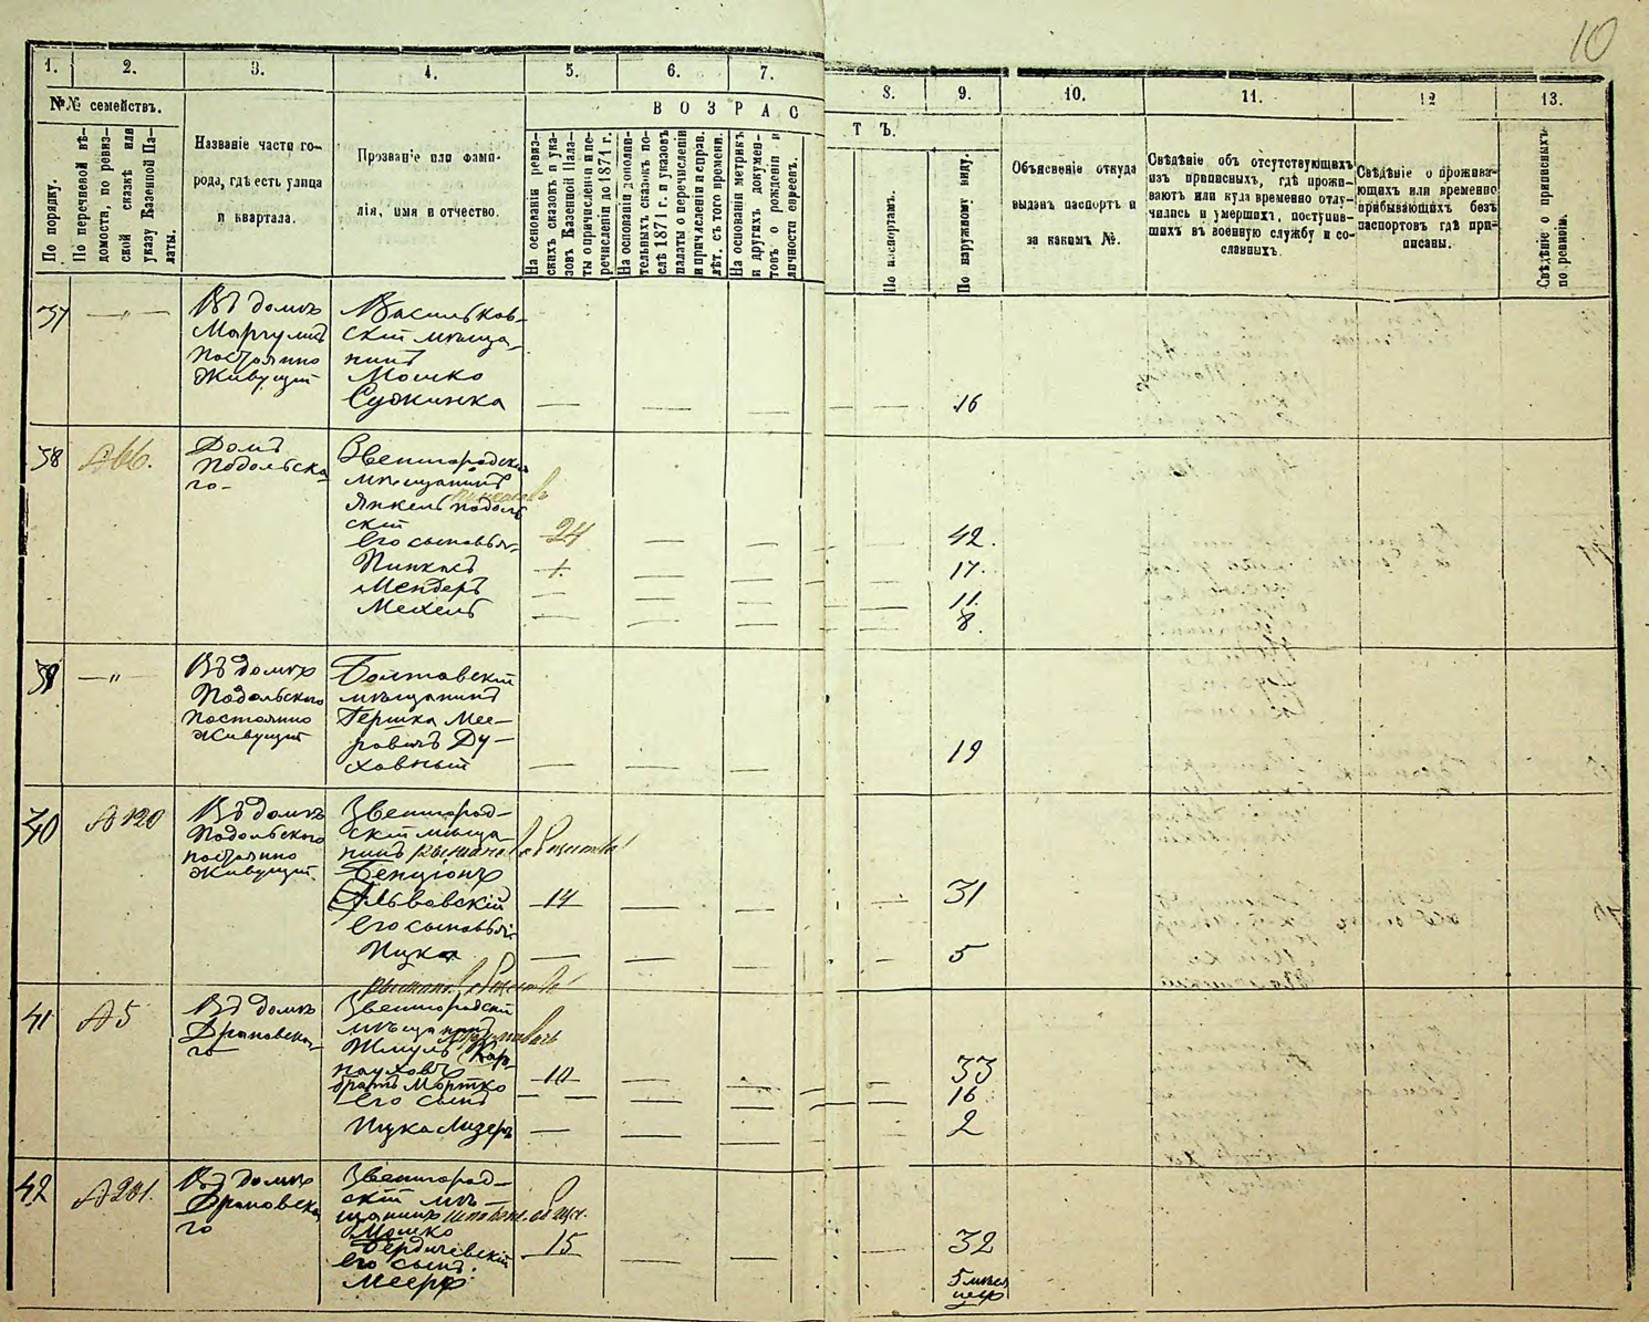 10
1. 2. 3. 4. 5. 6. 7. 8. 9. 10. 11. 12 13.
№№ семействъ.
По порядку.
По перечневой вѣ-
домости, по ревиз-
ской сказкѣ или
указу Казенной Па-
латы.
Названіе части го-
рода, гдѣ есть улица
и квартала.
Прозваніе или фами-
лія, имя и отчество.
ВОЗРАСТЪ.
На основаніи ревиз-
скихъ сказокъ и ука-
зовъ Казенной Пала-
ты о причисленіи и пе-
речисленіи до 1871 г.
На основаніи дополни-
тельныхъ сказокъ по-
слѣ 1871 г. и указовъ
палаты о перечисленіи
и причисленіи и справ.
лѣт. съ того времени.
На основаніи метрикъ
и другихъ докумен-
товъ о рожденіи и
личности евреевъ.
По паспортамъ.
По наружному виду.
Объясненіе откуда
выданъ паспортъ и
за какимъ №.
Свѣдѣніе объ отсутствующихъ
изъ приписныхъ, гдѣ прожи-
ваютъ или куда временно отлу-
чились и умершихъ, поступив-
шихъ въ военную службу и со-
сланныхъ.
Свѣдѣніе о прожива-
ющихъ или временно
прибывающихъ безъ
паспортовъ гдѣ при-
писаны.
Свѣдѣніе о приписныхъ
по ревизіи.
37
Въ домѣ
Маргулиса
постоянно
живущій
Васильков-
скій мѣща-
нинъ
Мошко
16
38
№ 66.
Домъ
Подольска-
го
Звенигородскій
мѣщанинъ
Янкель Подоль
скій
24
42.
его сыновья
Пинкасъ
17.
Мендель
11.
Мехель
8.
39
Въ домѣ
Подольскаго
постоянно
живущій
мѣщанинъ
Гершка Мее-
ровичъ Ду-
ховный
19
40
№ 120
Въ домѣ
Подольскаго
постоянно
живущій
Звенигород-
скій мѣща-
нинъ
Бенціонъ
Львовскій
14
31
его сыновья
Ицка
5
41
№ 5
Въ домѣ
Драновска-
го
Звенигородскій
мѣщанинъ
Шмуль Кар-
науховъ
10
33
братъ Мортко
16
его сынъ
Ицка Лизеръ
2
42
№ 281.
Въ домѣ
Драновска
го
Звенигород-
скій мѣ-
щанинъ
Мошко
Бердичевскій
15
32
его сынъ
Мееръ
5 мѣся
цевъ